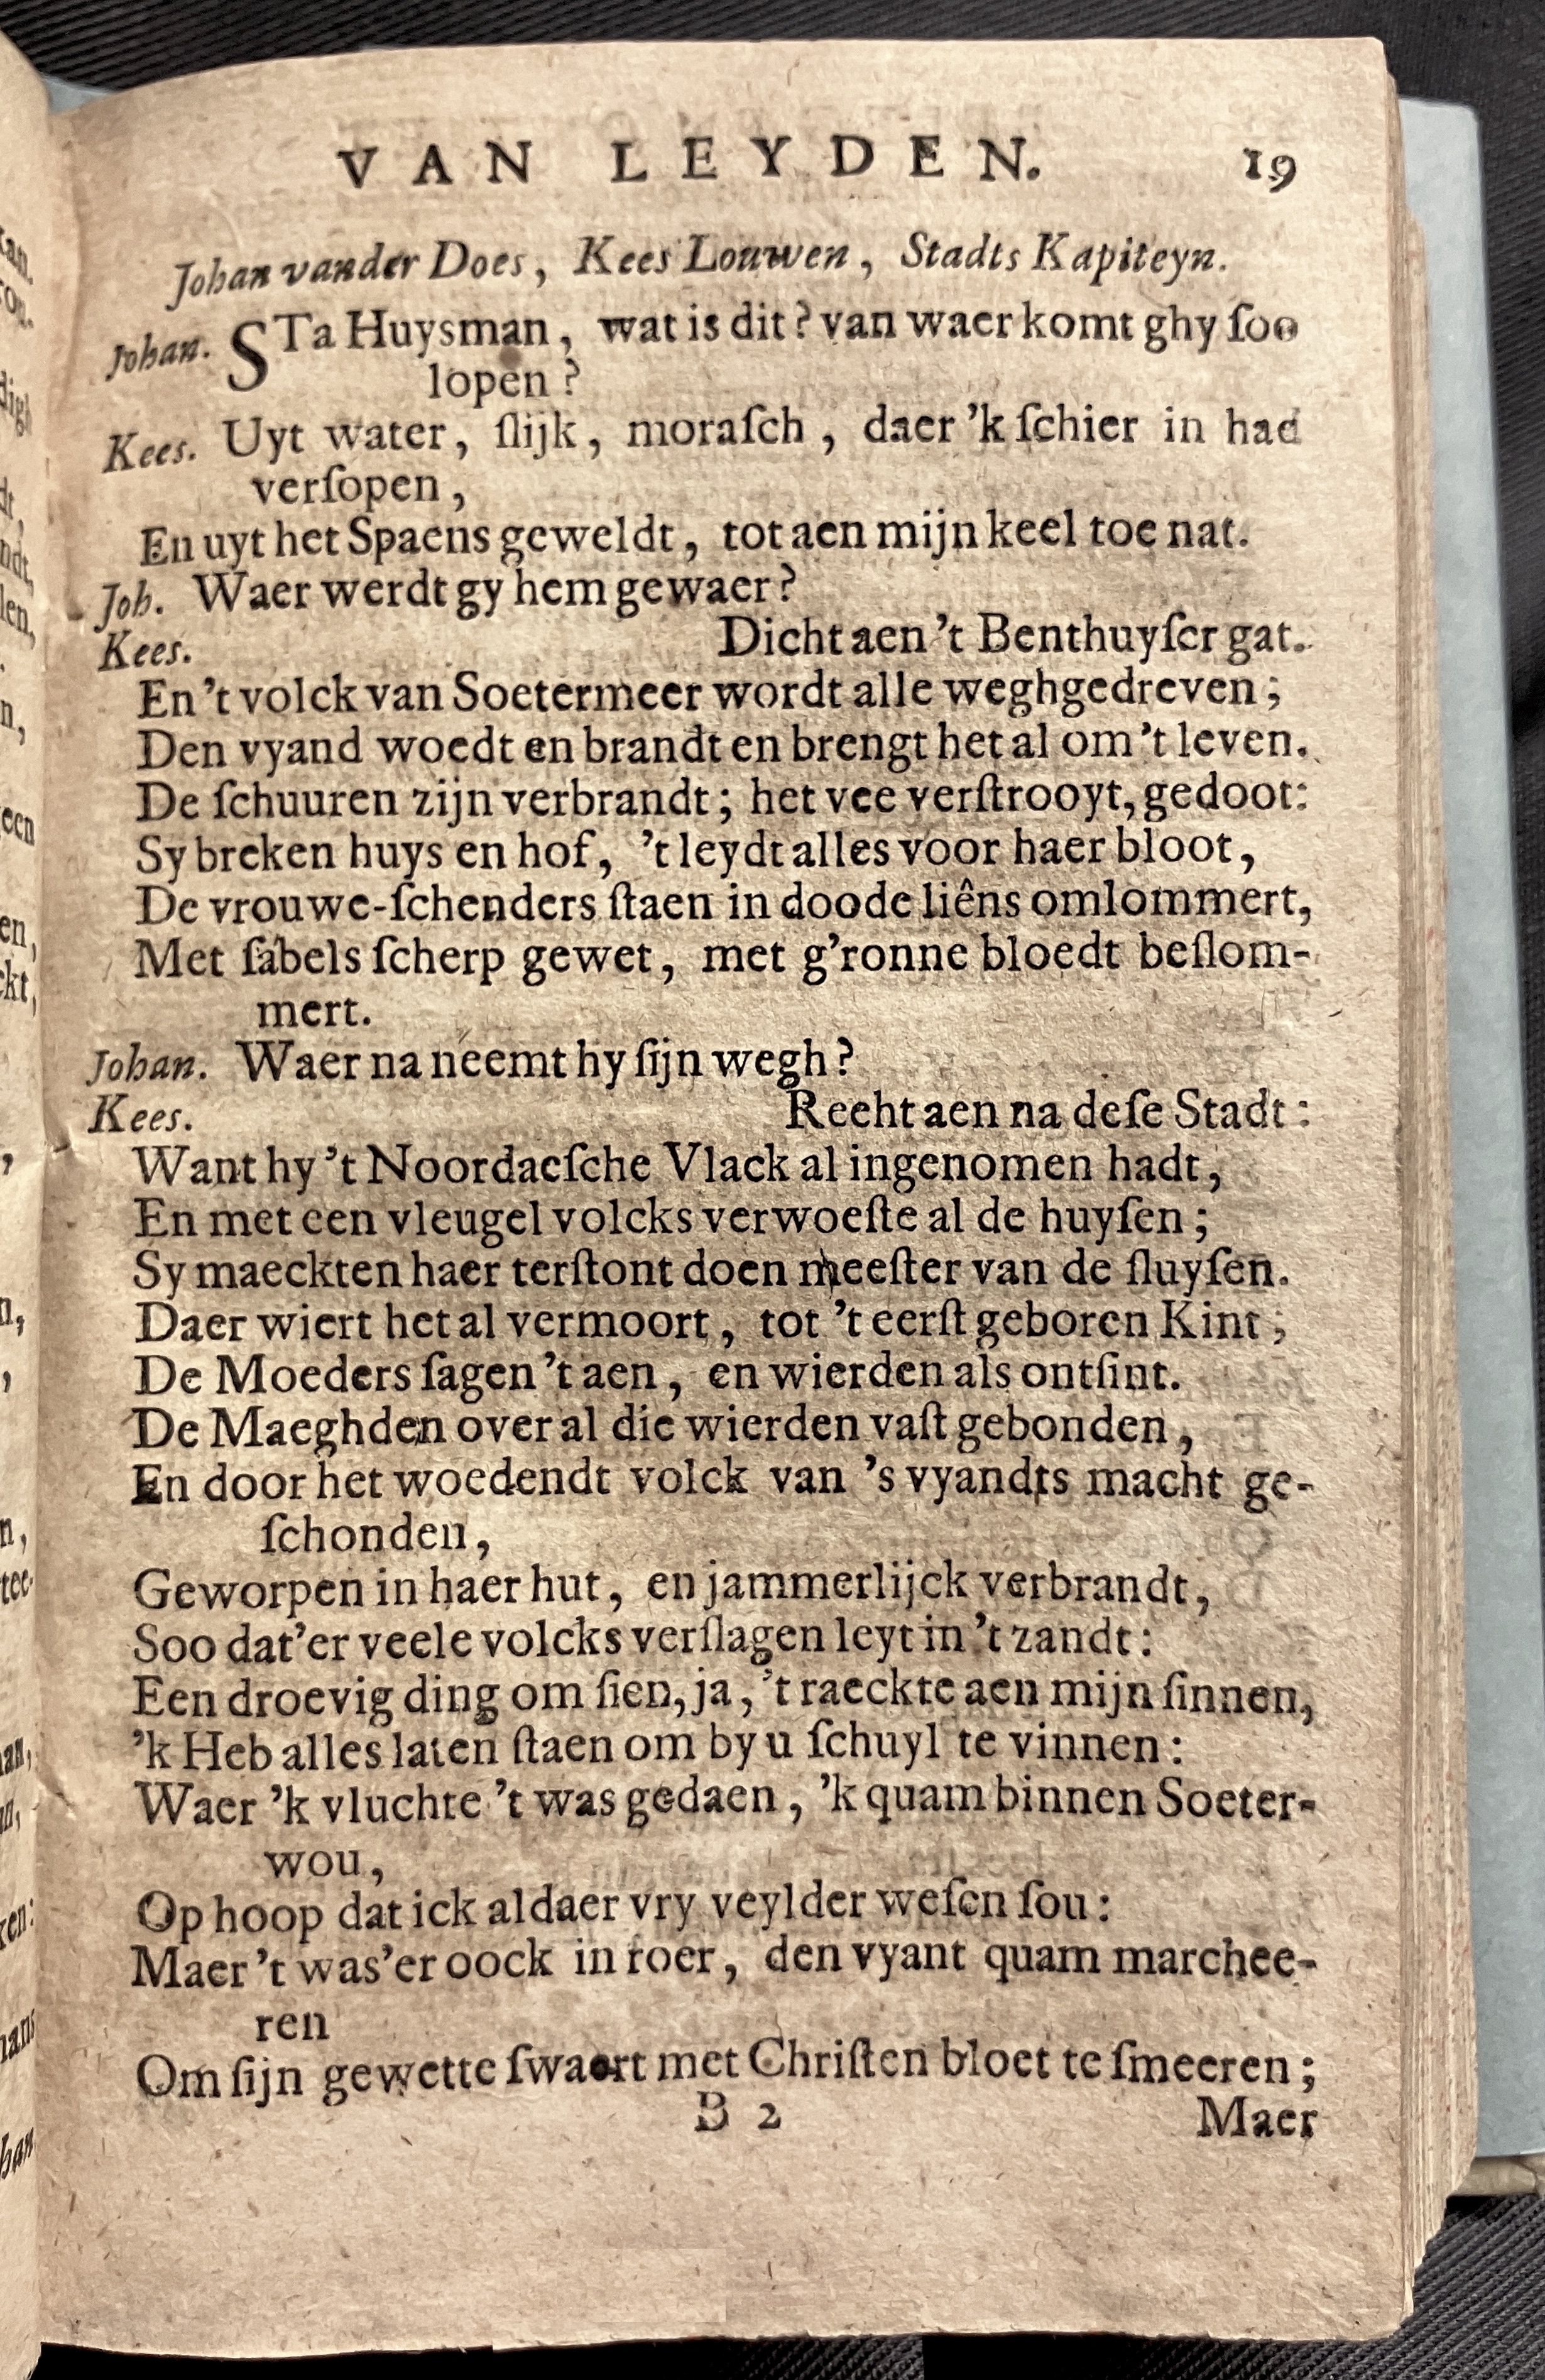 VAN LEYDEN. 19
Johan vander Does, Kees Louwen, Stadts Kapiteyn.
Johan. STa Huysman, wat is dit? van waer komt ghy ſoo
lopen?
Kees. Uyt water, ſlijk, moraſch, daer 'k ſchier in had
verſopen,
En uyt het Spaens geweldt, tot aen mijn keel toe nat.
Joh. Waer werdt gy hem gewaer?
Kees. Dicht aen 't Benthuyſer gat.
En 't volck van Soetermeer wordt alle weghgedreven;
Den vyand woedt en brandt en brengt het al om 't leven.
De ſchuuren zijn verbrandt; het vee verſtrooyt, gedoot:
Sy breken huys en hof, 't leydt alles voor haer bloot,
De vrouwe-ſchenders ſtaen in doode liêns omlommert,
Met ſabels ſcherp gewet, met g'ronne bloedt beſlom-
mert.
Johan. Waer na neemt hy ſijn wegh?
Kees. Reeht aen na deſe Stadt:
Want hy 't Noordaeſche Vlack al ingenomen hadt,
En met een vleugel volcks verwoeſte al de huyſen;
Sy maeckten haer terſtont doen meeſter van de ſluyſen.
Daer wiert het al vermoort, tot 't eerſt geboren Kint;
De Moeders ſagen 't aen, en wierden als ontſint.
De Maeghden over al die wierden vaſt gebonden,
En door het woedendt volck van 's vyandts macht ge-
ſchonden,
Geworpen in haer hut, en jammerlijck verbrandt,
Soo dat'er veele volcks verſlagen leyt in 't zandt:
Een droevig ding om ſien, ja, 't raeckte aen mijn ſinnen,
'k Heb alles laten ſtaen om by u ſchuyl te vinnen:
Waer 'k vluchte 't was gedaen, 'k quam binnen Soeter-
wou,
Op hoop dat ick aldaer vry veylder weſen ſou:
Maer 't was'er oock in roer, den vyant quam marchee-
ren
Om ſijn gewette ſwaert met Chriſten bloet te ſmeeren;
B 2 Maer